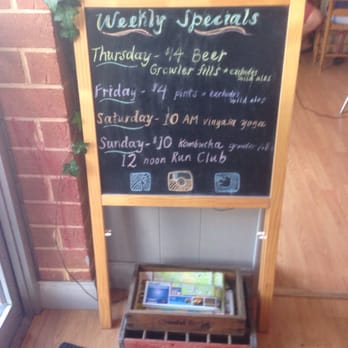 Weekly Specials
Thursday - $4 Beer
Growler fills * excludes
wild ales
Friday - $4 pints * excludes
wild ales
Saturday - 10 AM vinyasa yoga
Sunday - $10 Kombucha growler fills
12 noon Run Club